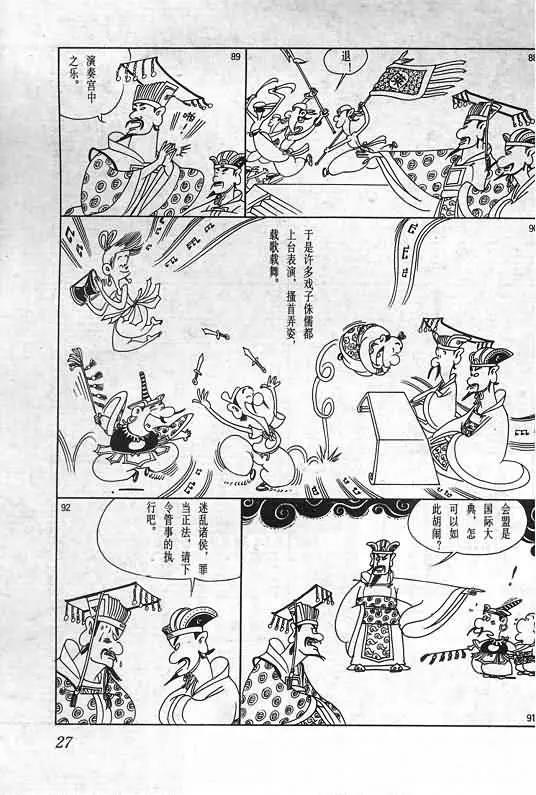 88
退！
89
演奏宫中
之乐。
90
于是许多戏子侏儒都
上台表演，搔首弄姿，
载歌载舞。
会盟是
国际大
典，怎
可以如
此胡闹？
91
92
迷乱诸侯，罪
当正法，请下
令管事的执
行吧。
27